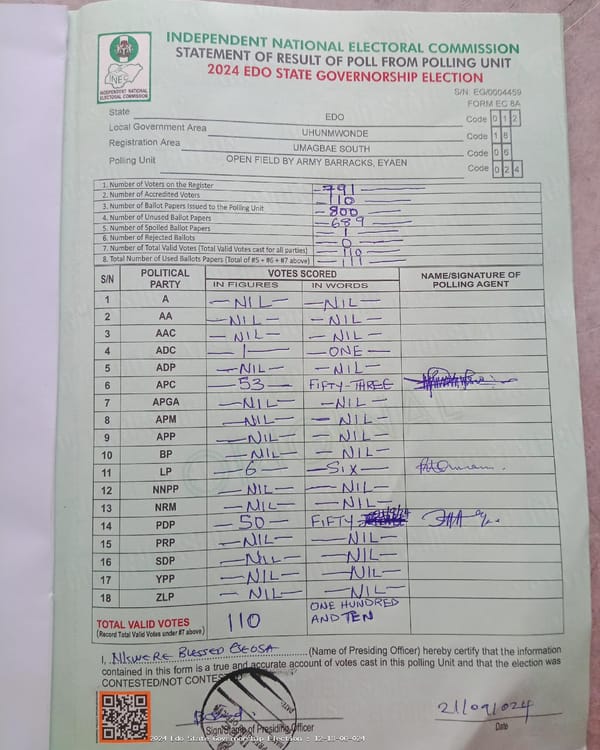 INDEPENDENT NATIONAL ELECTORAL COMMISSION
STATEMENT OF RESULT OF POLL FROM POLLING UNIT
2024 EDO STATE GOVERNORSHIP ELECTION
INEC
INDEPENDENT NATIONAL ELECTORAL COMMISSION
S/N EG/0004459
FORM EC 8A
State EDO Code 0 1 2
Local Government Area UHUNMWONDE Code 1 6
Registration Area UMAGBAE SOUTH Code 0 6
Polling Unit OPEN FIELD BY ARMY BARRACKS, EYAEN Code 0 2 4
1. Number of Voters on the Register 791
2. Number of Accredited Voters 110
3. Number of Ballot Papers Issued to the Polling Unit 800
4. Number of Unused Ballot Papers 689
5. Number of Spoiled Ballot Papers 1
6. Number of Rejected Ballots 0
7. Number of Total Valid Votes (Total Valid Votes cast for all parties) 110
8. Total Number of Used Ballots Papers (Total of #5 + #6 + #7 above) 111
S/N POLITICAL PARTY VOTES SCORED NAME/SIGNATURE OF POLLING AGENT
IN FIGURES IN WORDS
1 A NIL NIL
2 AA NIL NIL
3 AAC NIL NIL
4 ADC 1 ONE
5 ADP NIL NIL
6 APC 53 FIFTY-THREE
7 APGA NIL NIL
8 APM NIL NIL
9 APP NIL NIL
10 BP NIL NIL
11 LP 6 SIX
12 NNPP NIL NIL
13 NRM NIL NIL
14 PDP 50 FIFTY
15 PRP NIL NIL
16 SDP NIL NIL
17 YPP NIL NIL
18 ZLP NIL NIL
TOTAL VALID VOTES 110 ONE HUNDRED AND TEN
(Record Total Valid Votes under #7 above)
I, BLESSED (Name of Presiding Officer) hereby certify that the information
contained in this form is a true and accurate account of votes cast in this polling Unit and that the election was
CONTESTED/NOT CONTESTED
Sign/Stamp of Presiding Officer
21/09/2024
Date
2024 Edo State Governorship Election - 12-18-06-024